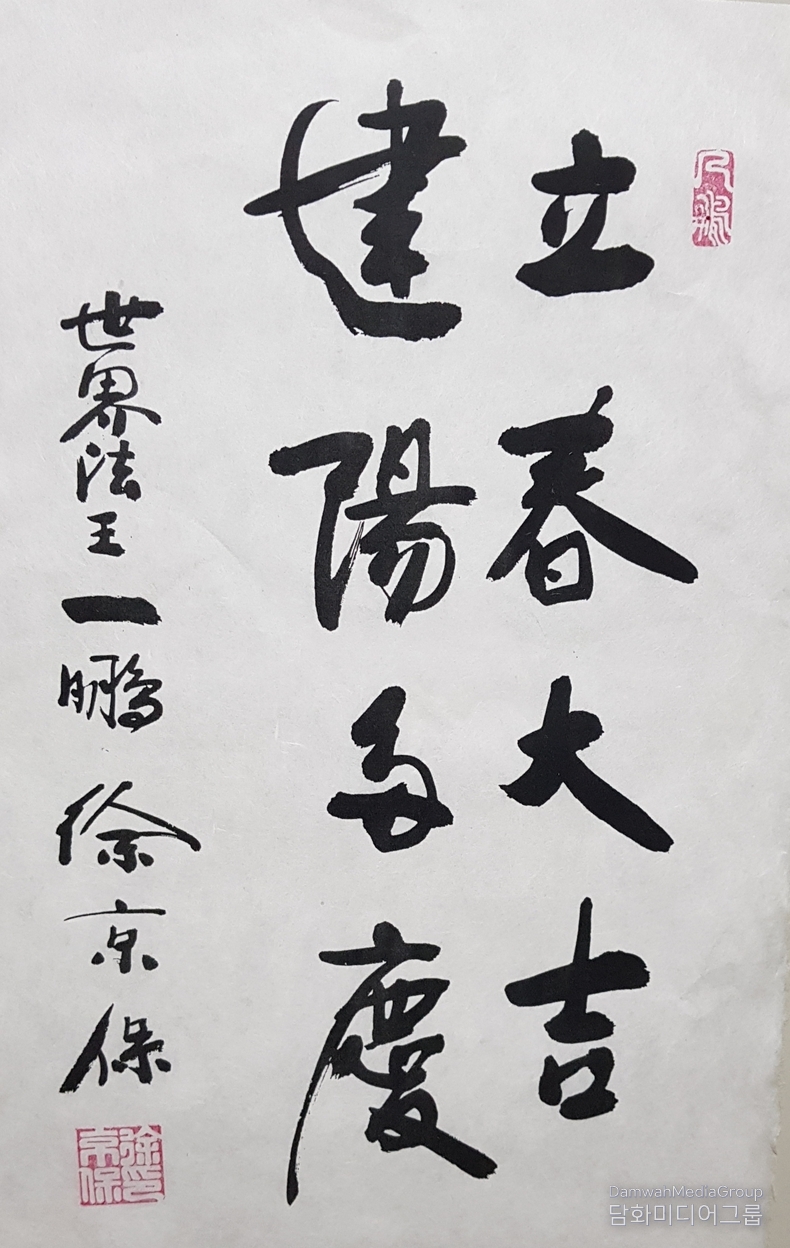 立春大吉
建陽多慶
世界法王一鵬徐京保
徐京保印
DamwanMediaGroup
담화미디어그룹